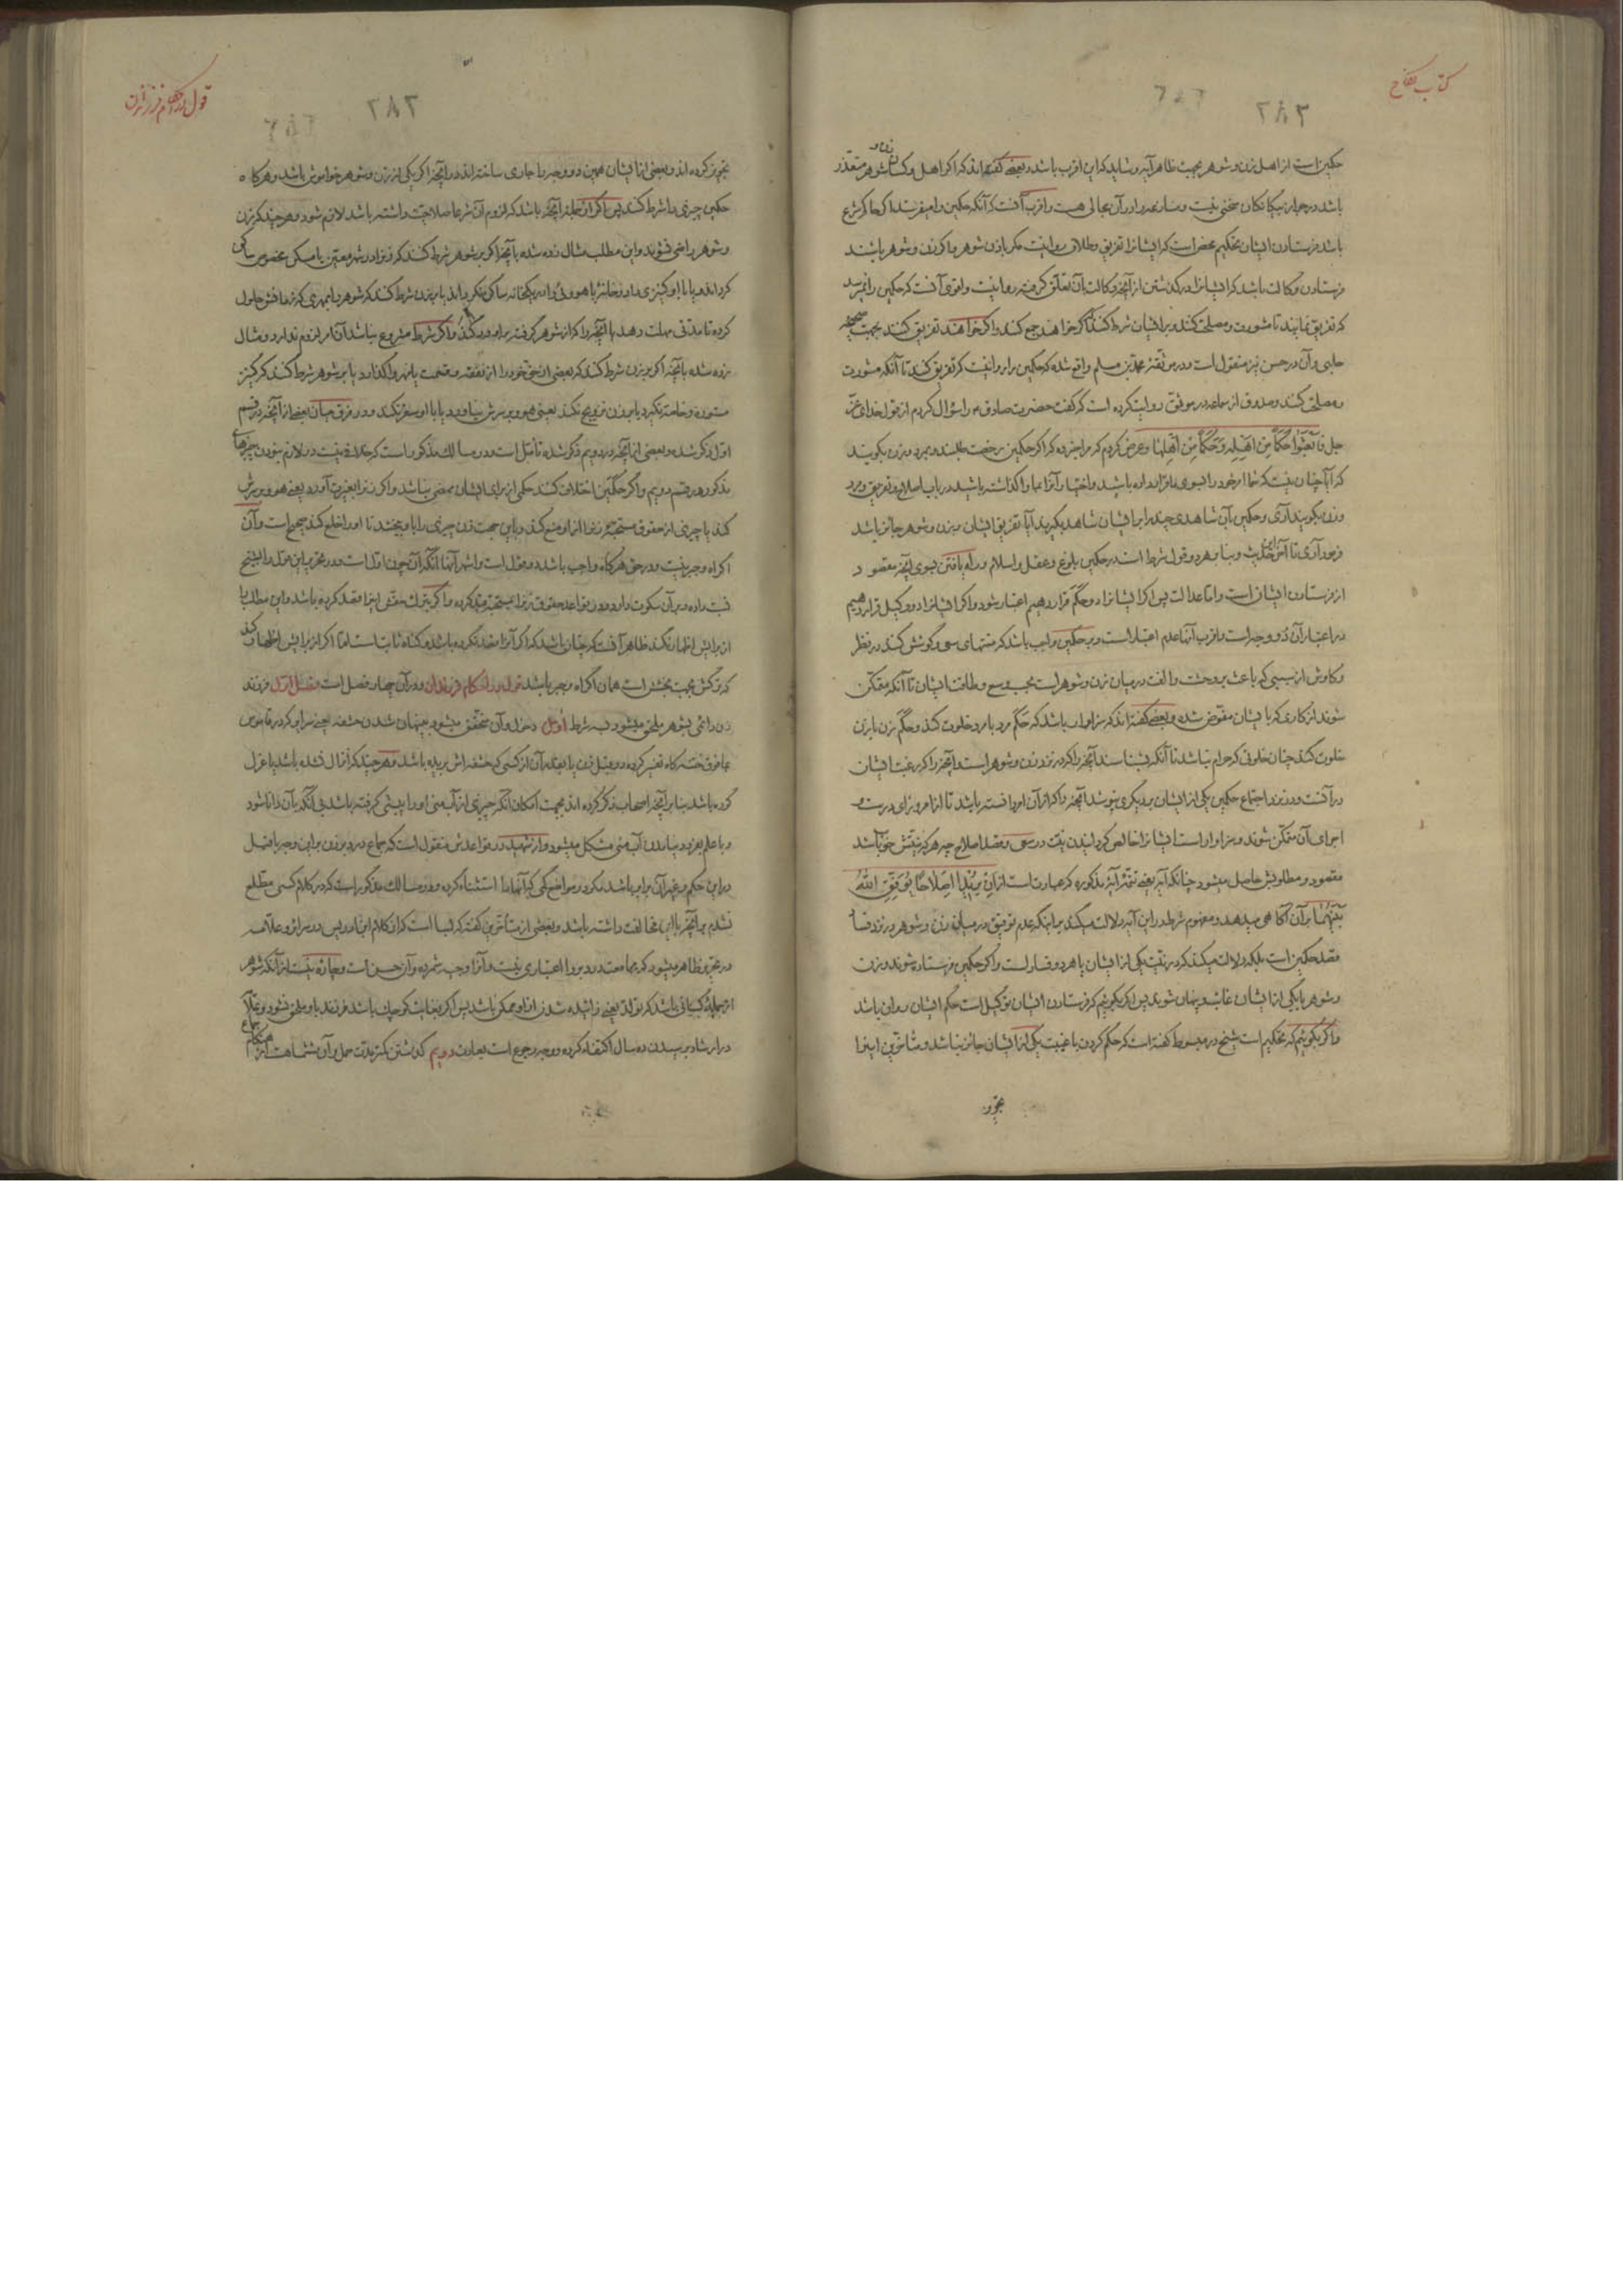 کتاب نکاح
۲۸۳
حکمین است از اهل زن و شوهر بجهت ظاهر آیه و شاید که این اقرب باشد و بعضی گفته اند که اگر اهل و کسان زن و شوهر متعذر
باشد در جواز بیگانگان سخنی نیست و
باشد فرستادن ایشان تحکیم محض است که ایشانرا تفریق و طلاق روا نیست مگر باذن شوهر و اگر زن و شوهر باشند
فرستادن وکالت باشد که ایشانرا در گذشتن از آنچه وکالت بآن تعلق گرفته روا نیست و اقوی آنست که حکمین را نمیرسد
که تفریق نمایند تا مشورت و مصلحت کنند و بر ایشان شرط کنند که اگر خواهند جمع کنند و اگر خواهند تفریق کنند بجهت صحیحه
حلبی و آن در حسن نیز منقول است و در موثقه محمد بن مسلم واقع شده که حکمین را روا نیست که تفریق کنند تا آنکه مشورت
و مصلحت کنند و صدوق از سماعه در موثق روایت کرده است که گفت حضرت صادق ع را سؤال کردم از قول خدای عز
و جل فابعثوا حکما من اهله و حکما من اهلها و عرض کردم که مرا خبر ده که اگر حکمین رخصت طلبند و بمرد و زن بگویند
که آیا چنان نیست که شما امر خود را بسوی ما قرار داده باشید و اختیار آنرا بما واگذاشته باشید در باب اصلاح و تفریق و مرد
و زن بگویند آری و حکمین بآن شاهدی چند را بر ایشان شاهد بگیرند آیا تفریق ایشان مر زن و شوهر جائز باشد
فرمود آری تا آخر این حدیث و بنا بر هر دو قول شرط است در حکمین بلوغ و عقل و اسلام و راه یافتن بسوی آنچه مقصود
از فرستادن ایشان است و اما عدالت پس اگر ایشانرا دو حکم قرار دهیم اعتبار میشود و اگر ایشانرا دو وکیل قرار دهیم
در اعتبار آن دو وجه است و اقرب آنها عدم اعتبار است و بر حکمین واجب باشد که منتهای سعی و کوشش کنند در نظر
و کاوش از سببی که باعث بر وحشت و الفت در میان زن و شوهر است بحسب وسع و طاقت ایشان تا آنکه متمکن
شوند از کاری که بایشان مفوض شده و بعضی گفته اند که سزاوار باشد که حکم مرد با مرد خلوت کند و حکم زن با زن
خلوت کند چنان خلوتی که حرام نباشد تا آنکه بشناسند آنچه را که در نزد زن و شوهر است و آنچه را که رغبت ایشان
در آنست و در نزد اجتماع حکمین یکی از ایشان بر دیگری نپوشد آنچه را که از آن امر دانسته باشد تا از امروز رای درست و
اجرای آن متمکن شوند و سزاوار است ایشانرا خالص گردانیدن نیت در سعی و قصد اصلاح چه هر که نیتش خوب باشد
مقصود و مطلوبش حاصل میشود چنانکه آیه یعنی تتمه آیه مذکوره که عبارت است از ان یریدا اصلاحا یوفق الله
بینهما بر آن آگاهی میدهد و مفهوم شرط در این آیه دلالت میکند بر اینکه عدم توفیق در میان زن و شوهر در نزد فساد
قصد حکمین است بلکه دلالت میکند که در نیت یکی از ایشان یا هر دو فساد است و اگر حکمین فرستاده شوند و زن
و شوهر یا یکی از ایشان غائب و پنهان شوند پس اگر بگوئیم که فرستادن ایشان توکیل است حکم ایشان روان باشد
و اگر بگوئیم که تحکیم است شیخ در مبسوط گفته است که حکم کردن با غیبت یکی از ایشان جائز نباشد و متأخرین اینرا
تجویز
قول در احکام فرزندان
۲۸۲
تجویز کرده اند و بعضی از ایشان همین دو وجه را جاری ساخته اند در آنچه اگر یکی از زن و شوهر خواموش باشد و هرگاه
حکمین چیزی را شرط کنند پس اگر از جمله آنچه باشد که لزوم آن شرعا صلاحیت داشته باشد لازم شود و هر چند که زن
و شوهر راضی نشوند و این مطلب مثال زده شده بآنچه اگر بر شوهر شرط کنند که زنرا در شهر معین یا مسکن مخصوص ساکن
گرداند و یا با او کنیزی را در خانه یا هووئی را در یکخانه ساکن نگرداند یا بر زن شرط کنند که شوهر را بمهری که در ذمه اش حلول
کرده تا مدتی مهلت دهد یا آنچه را که از شوهر گرفته باو رد کند و اگر شرط مشروع نباشد آن امر لزوم ندارد و مثال
زده شده بآنچه اگر بر زن شرط کنند که بعضی از حق خود را از نفقه و قسمت یا مهر واگذارد یا بر شوهر شرط کنند که کنیز
متعه و خاصه نگیرد یا بر زن تزویج نکند یعنی هوو بر سرش نیاورد یا با او سفر نکند و در فرق میان بعضی از آنچه در قسم
اول ذکر شده و بعضی از آنچه در دویم ذکر شده تأمل است و در مسالک مذکور است که خلافی نیست در لازم نبودن چیزهای
مذکور در قسم دویم و اگر حکمین اختلاف کنند حکمی از برای ایشان ممضی نباشد و اگر زنرا بغیرت آورد یعنی هوو بر سرش
کند یا چیزی از حقوق مستحبه زنرا از او منع کند و باین جهت زن چیزی را باو ببخشد تا او را خلع کند صحیح است و آن
اکراه و جبر نیست و در حق هرگاه واجب باشد دو قول است و اشهر آنها آنکه آن چون اول است و در تحریر این قول را بشیخ
نسبت داده و بر آن سکوت دارد و در قواعد حقوق زنرا بمستحبه مقید کرده و اگر بترک حقش اینرا قصد کرده باشد و این مطلب را
از برایش اظهار نکند ظاهر آنست که چنان باشد که اگر آنرا قصد نکرده باشد و گناه ثابت است اما اگر از برایش اظهار کند
که ترکش بجهت بخشش است همان اکراه و جبر باشد قول در احکام فرزندان و در آن چهار فصل است فصل اول فرزند
زن دائمی بشوهر ملحق میشود بسه شرط اول دخول و آن متحقق میشود بپنهان شدن حشفه یعنی سر ابو که در قاموس
بما فوق ختنه گاه تفسیر کرده در قبل زن یا بقدر آن از کسی که حشفه اش بریده باشد و هر چند که انزال نشده باشد یا عزل
کرده باشد بنا بر آنچه اصحاب ذکر کرده اند بجهت امکان آنکه چیزی از آب منی او را پیشی گرفته باشد بی آنکه بآن دانا شود
و با علم بفرود نیامدن آب منی مشکل میشود و از شهید در قواعدش منقول است که جماع در دبر زن بر این وجه باقبل
در این حکم و غیر آن برابر باشد مگر در مواضع کمی که آنها را استثناء کرده و در مسالک مذکور است که در کلام کسی مطلع
نشدم بر آنچه با این مخالفت داشته باشد و بعضی از متأخرین گفته که بسا است که از کلام ابن ادریس در سرائر و علامه
در تحریر ظاهر میشود که بمجامعت در دبر اعتباری نیست و آنرا وجیه شمرده و آن حسن است و چاره نیست از آنکه شوهر
از جمله کسانی باشد که تولد یعنی زائیده شدن از او ممکن باشد پس اگر بغایت کوچک باشد فرزند باو ملحق نشود و علامه
در ارشاد برسیدن ده سال اکتفاء کرده و وجه رجوع است بعادت دویم گذشتن کمتر مدت حمل و آن ششماهست از هنگام جماع